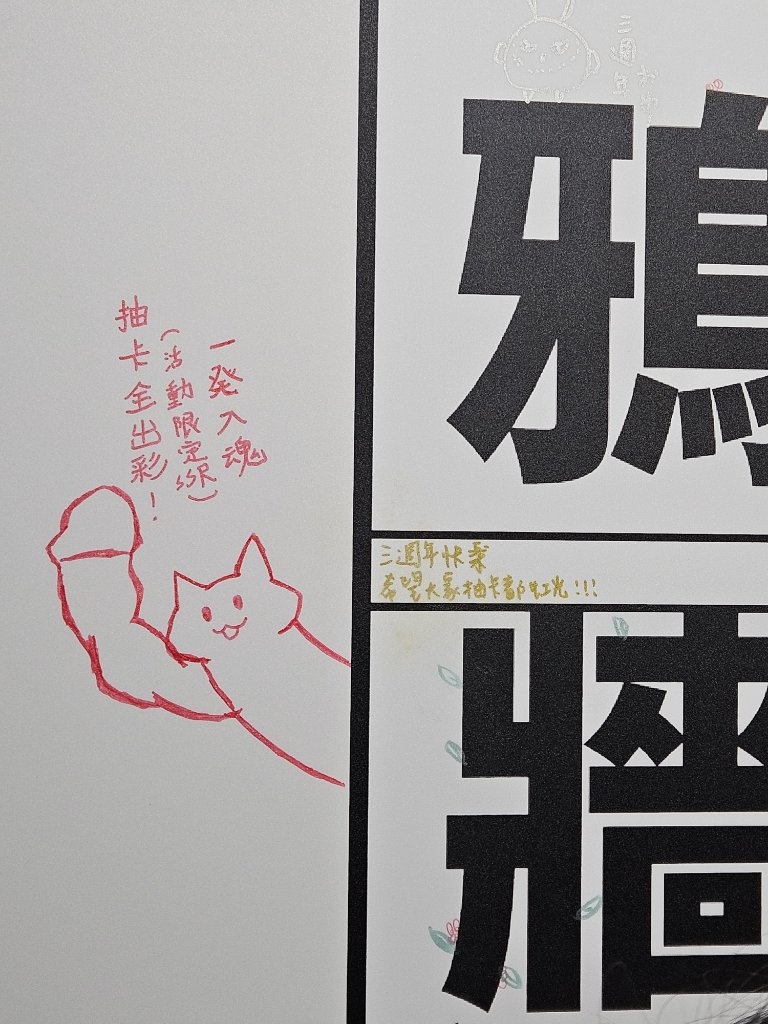 三週年
鴉
牆
一発入魂
(活動限定SSR)
抽卡全出彩！
三週年快樂
希望大家抽卡都虹光!!!